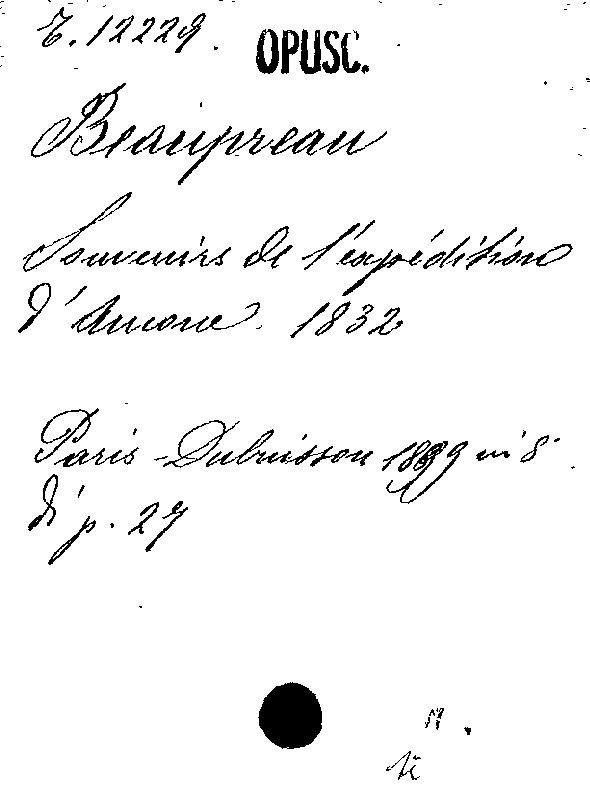 12229.
OPUSC.
Beaupreau
Souvenirs de l'expédition
d'Ancone. 1832
Paris - Dubuisson in 8°
di p. 27